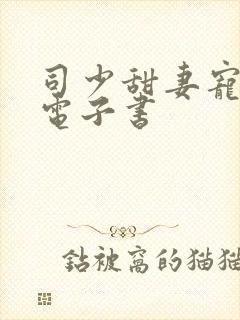 司少甜妻寵
電子書
鉆被窩的貓貓